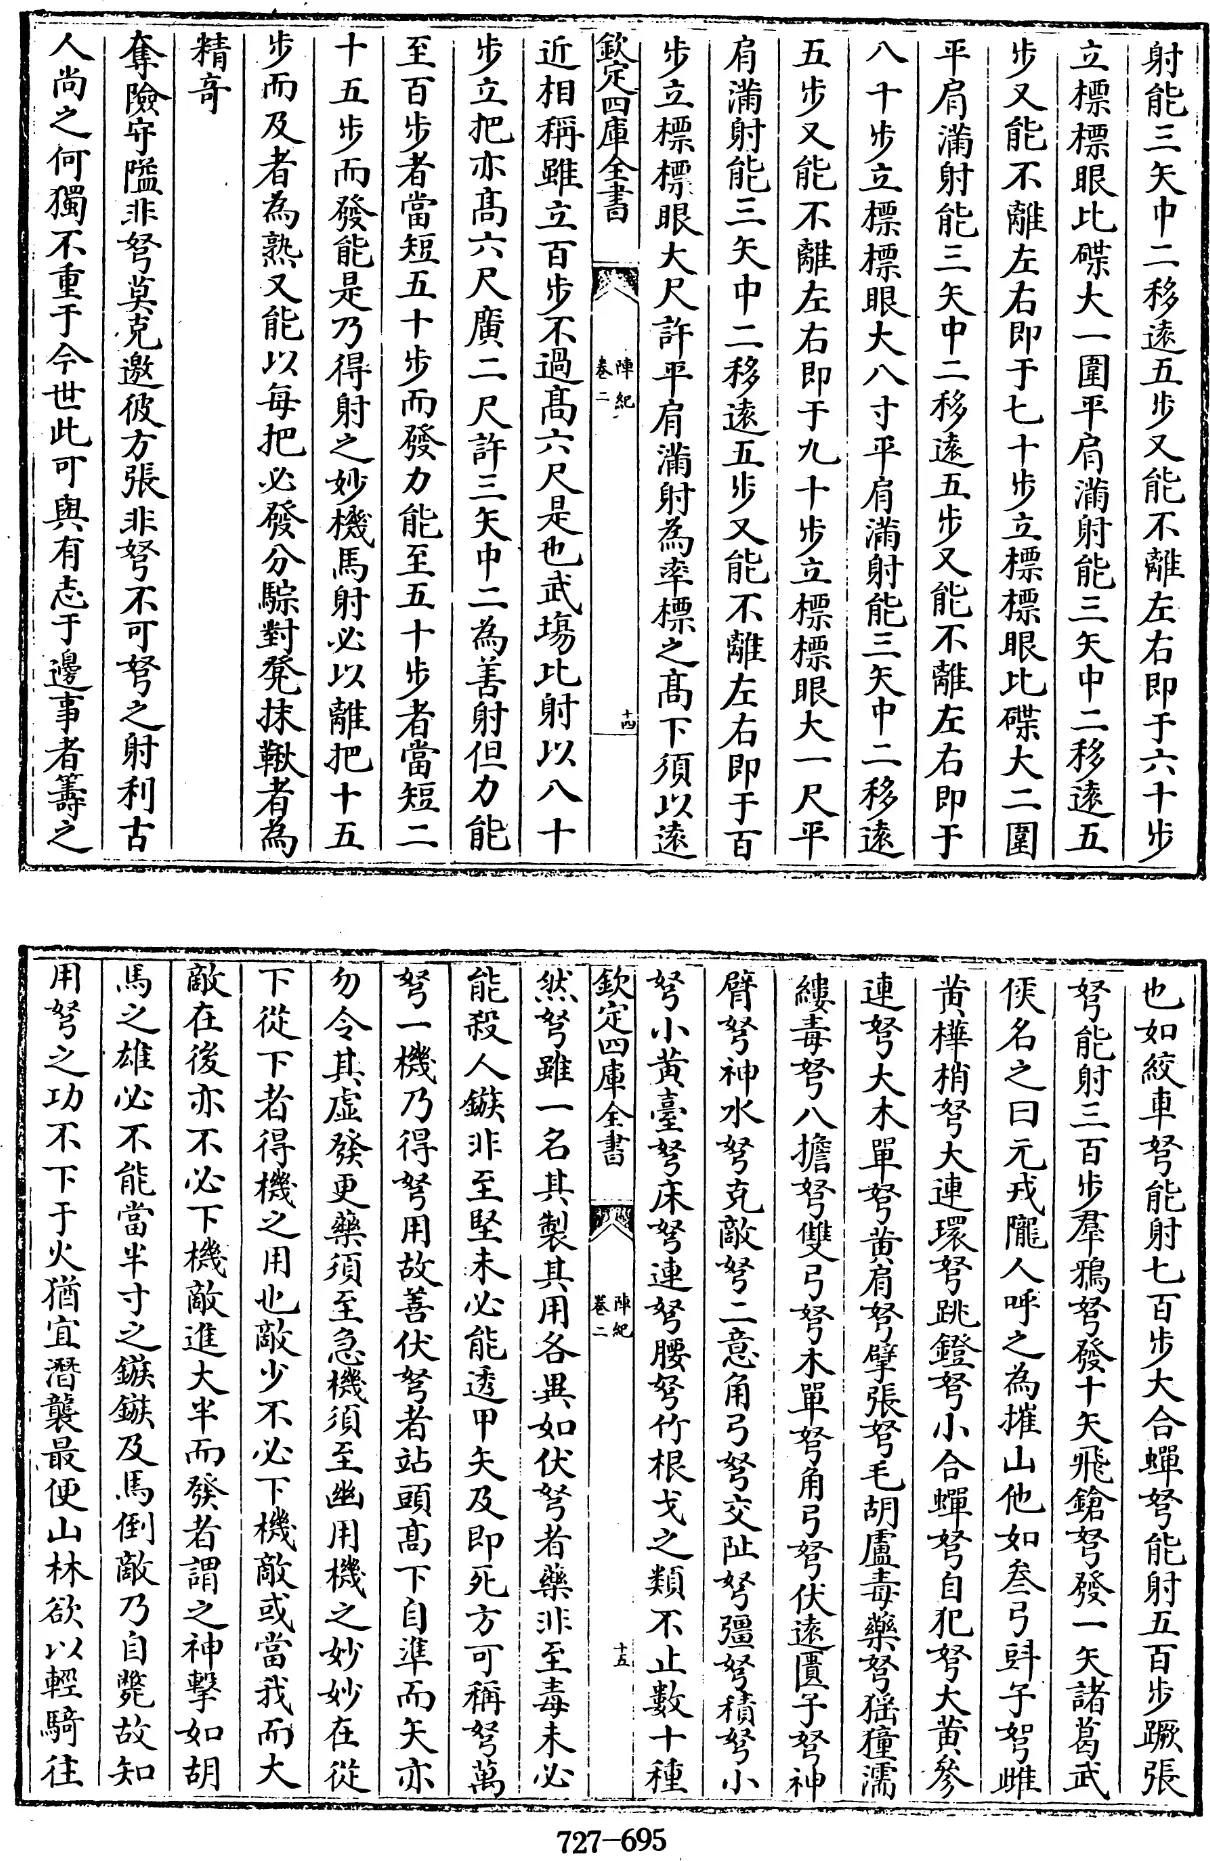 射能三矢中二移遠五步又能不離左右即于六十步
立標標眼比碟大一圍平肩滿射能三矢中二移遠五
步又能不離左右即于七十步立標標眼比碟大二圍
平肩滿射能三矢中二移遠五步又能不離左右即于
八十步立標標眼大八寸平肩滿射能三矢中二移遠
五步又能不離左右即于九十步立標標眼大一尺平
肩滿射能三矢中二移遠五步又能不離左右即于百
步立標標眼大尺許平肩滿射為率標之髙下須以遠
欽定四庫全書
陣紀
卷二
十四
近相稱雖立百步不過髙六尺是也武場比射以八十
步立把亦髙六尺廣二尺許三矢中二為善射但力能
至百步者當短五十步而發力能至五十步者當短二
十五步而發能是乃得射之妙機馬射必以離把十五
步而及者為熟又能以每把必發分騌對凳抹鞦者為
精奇
奪險守隘非弩莫克邀彼方張非弩不可弩之射利古
人尚之何獨不重于今世此可與有志于邊事者籌之
也如絞車弩能射七百步大合蟬弩能射五百步蹶張
弩能射三百步羣鴉弩發十矢飛鎗弩發一矢諸葛武
侯名之曰元戎隴人呼之為摧山他如叁弓㪷子弩雌
黄樺梢弩大連環弩跳鐙弩小合蟬弩自犯弩大黄參
連弩大木單弩黄肩弩擘張弩毛胡盧毒藥弩猺獞濡
縷毒弩八擔弩雙弓弩木單弩角弓弩伏遠匱子弩神
臂弩神水弩克敵弩二意角弓弩交阯弩彊弩積弩小
弩小黄臺弩床弩連弩腰弩竹根戈之類不止數十種
欽定四庫全書
陣紀
卷二
十五
然弩雖一名其製其用各異如伏弩者藥非至毒未必
能殺人鏃非至堅未必能透甲矢及即死方可稱弩萬
弩一機乃得弩用故善伏弩者站頭髙下自準而矢亦
勿令其虛發更藥須至急機須至幽用機之妙妙在從
下從下者得機之用也敵少不必下機敵或當我而大
敵在後亦不必下機敵進大半而發者謂之神擊如胡
馬之雄必不能當半寸之鏃鏃及馬倒敵乃自斃故知
用弩之功不下于火猶宜潛襲最便山林欲以輕騎往
727—695